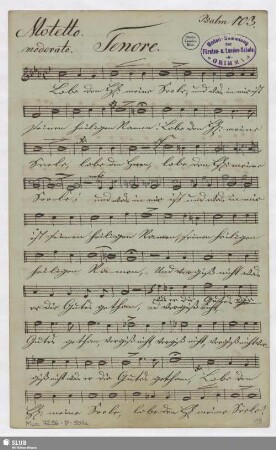 Motetto.
Psalm 103.
moderato.
Tenore.
Musikal. Sammlung
der
Fürsten- u. Landes-Schule
GRIMMA
Lobe den meine Seele, und was in mir ist
seinen heiligen Namen! Lobe den meine
Seele, lobe den Herrn, lobe den meine
Seele! und was in mir ist und was in mir
ist seinen heiligen Namen, seinen heiligen
heiligen Namen, Und vergiß nicht was
er dir Gutes gethan,
Gutes gethan, vergiß nicht vergiß nicht, vergiß nicht was
giß nicht was er dir Gutes gethan, Lobe den
meine Seele, lobe den meine Seele!
SLUB
Wir führen Wissen.